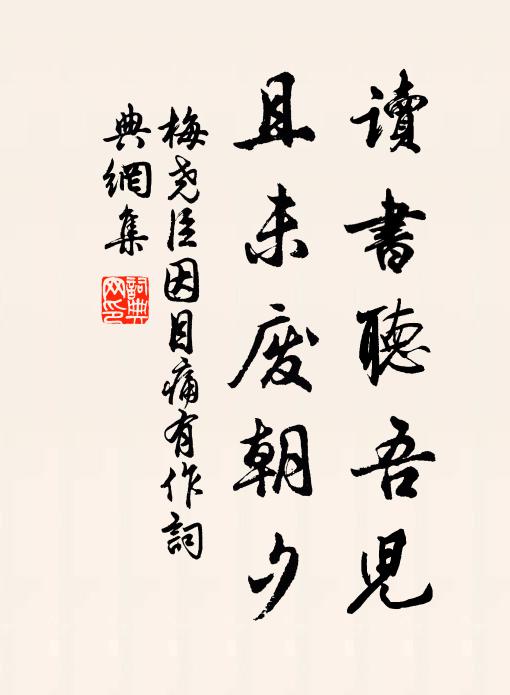 讀書聽吾兒
且未廢朝夕
梅堯臣因目痛有作詞
典網集
詞典网印